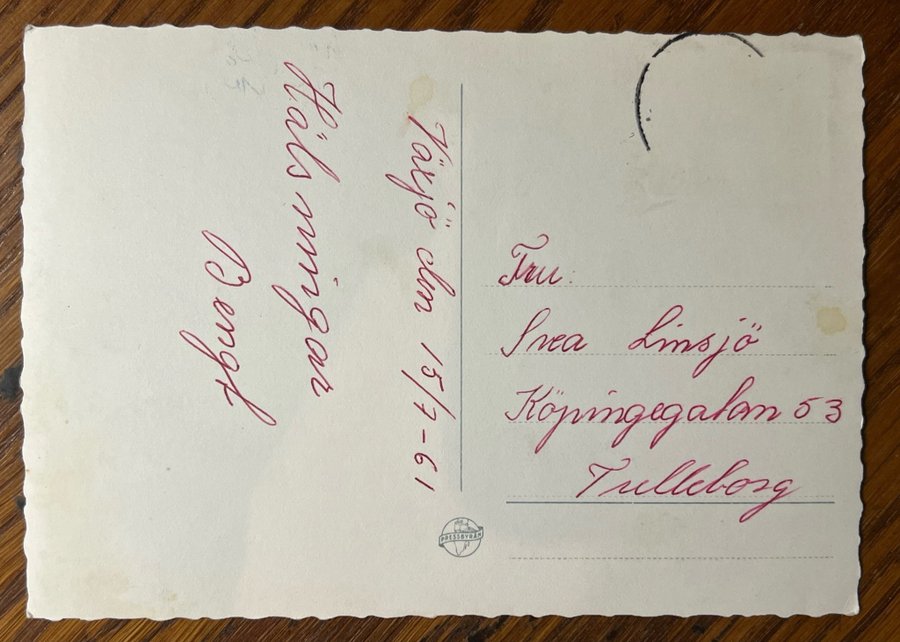 Växjö den 15/7-61
Hälsningar
Bengt
Fru
Svea Linsjö
Köpingegatan 53
Trelleborg
PRESSBYRÅN